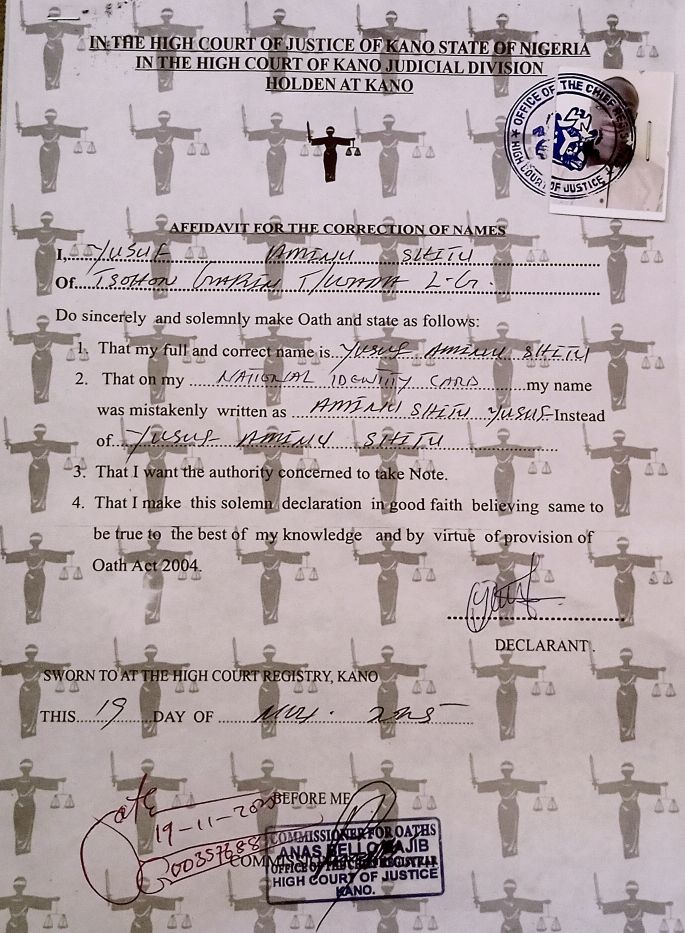 IN THE HIGH COURT OF JUSTICE OF KANO STATE OF NIGERIA
IN THE HIGH COURT OF KANO JUDICIAL DIVISION
HOLDEN AT KANO
OFFICE OF THE CHIEF
HIGH COURT OF JUSTICE
AFFIDAVIT FOR THE CORRECTION OF NAMES
I, YUSUF AMINU SHITU
Of TSOHON GARIN T/WADA L-G.
Do sincerely and solemnly make Oath and state as follows:
1. That my full and correct name is YUSUF AMINU SHITU
2. That on my NATIONAL IDENTITY CARD my name
was mistakenly written as AMINU SHITU YUSUF Instead
of YUSUF AMINU SHITU
3. That I want the authority concerned to take Note.
4. That I make this solemn declaration in good faith believing same to
be true to the best of my knowledge and by virtue of provision of
Oath Act 2004.
DECLARANT.
SWORN TO AT THE HIGH COURT REGISTRY, KANO
THIS 19 DAY OF NOV. 2025
BEFORE ME
19-11-20
00357688
COMMISSIONER FOR OATHS
ANAS BELLO
OFFICE OF THE CHIEF REGISTRAR
HIGH COURT OF JUSTICE
KANO.